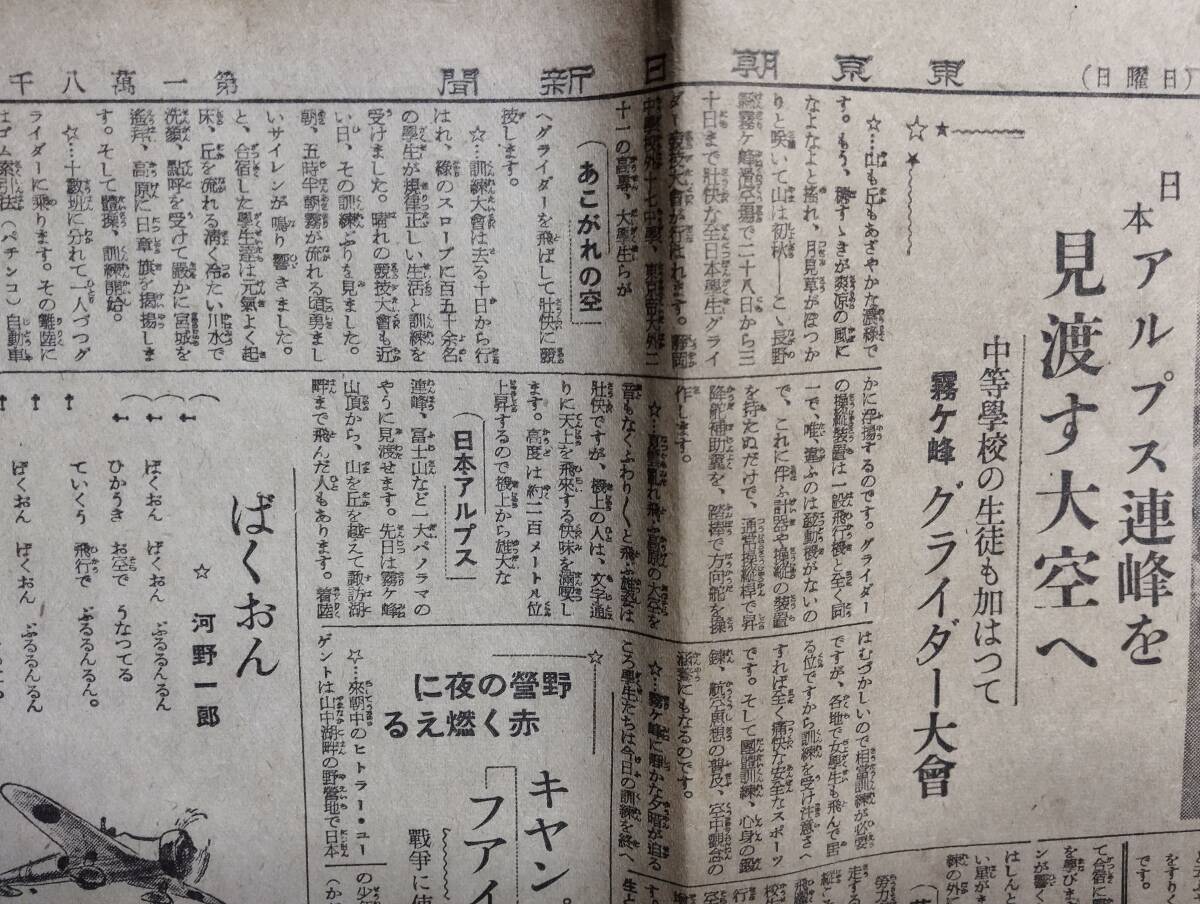 （日曜日）
東京朝日新聞
第一萬八千
日本アルプス連峰を
見渡す大空へ
中等學校の生徒も加はつて
霧ケ峰 グライダー大會
☆…山も丘もあざやかな濃緑で
す。もう、穂すゝきが爽涼の風に
なよなよと搖れ、月見草がぽつか
りと咲いて山は初秋――こゝ長野
縣霧ケ峰滑空場で二十八日から三
十日まで壯快な全日本學生グライ
ダー競技大會が行はれます。
十一の高專、大學生らが
ヘグライダーを飛ばして壯快に競
技します。
あこがれの空
☆…訓練大會は去る十日から行
はれ、緑のスロープに百五十余名
の學生が規律正しい生活と訓練を
受けました。晴れの競技大會も近
い日、その訓練ぶりを見ました。
朝、五時半朝霧が流れる頃勇まし
いサイレンが鳴り響きました。
と、合宿した學生達は元氣よく起
床、丘を流れる清く冷たい川水で
洗顔、點呼を受けて嚴かに宮城を
遙拜、高原に日章旗を掲揚しま
す。そして體操、訓練開始。
☆…十數班に分れて一人づつグ
ライダーに乘ります。その離陸に
はゴム索引法（パチンコ）自動車
かに浮揚するのです。グライダー
の操縱裝置は一般飛行機と全く同
一で、唯、違ふのは發動機がないの
で、これに伴ふ計器や操縱の裝置
を持たぬだけで、通常操縱桿で昇
降舵補助翼を、踏棒で方向舵を操
作します。
音もなくふわり〱と飛ぶ雄姿は
壯快ですが、機上の人は、文字通
りに天上を飛來する快味を滿喫し
ます。高度は約二百メートル位
上昇するので機上から雄大な
日本アルプス
連峰、富士山など一大パノラマの
やうに見渡せます。先日は霧ケ峰
山頂から、山を丘を越えて諏訪湖
畔まで飛んだ人もあります。着陸
はむづかしいので相當訓練が必要
ですが、各地で女學生も飛んで居
る位ですから訓練を受け注意さへ
すれば全く痛快な安全なスポーツ
です。そして團體訓練、心身の鍛
錬、航空思想の普及、空中觀念の
涵養にもなるのです。
☆…霧ケ峰に靜かな夕暗が迫る
ころ學生たちは今日の訓練を終へ
野營の夜に
赤く燃える
キヤンプ
フアイ
戰爭に使
☆…來朝中のヒトラー・ユー
ゲントは山中湖畔の野營地で日本
ばくおん
☆ 河野一郎
ばくおん ばくおん ぶるるんるん
ひかうき お空で うなつてる
ていくう 飛行で ぶるるんるん。
ばくおん ばくおん ぶるるんるん